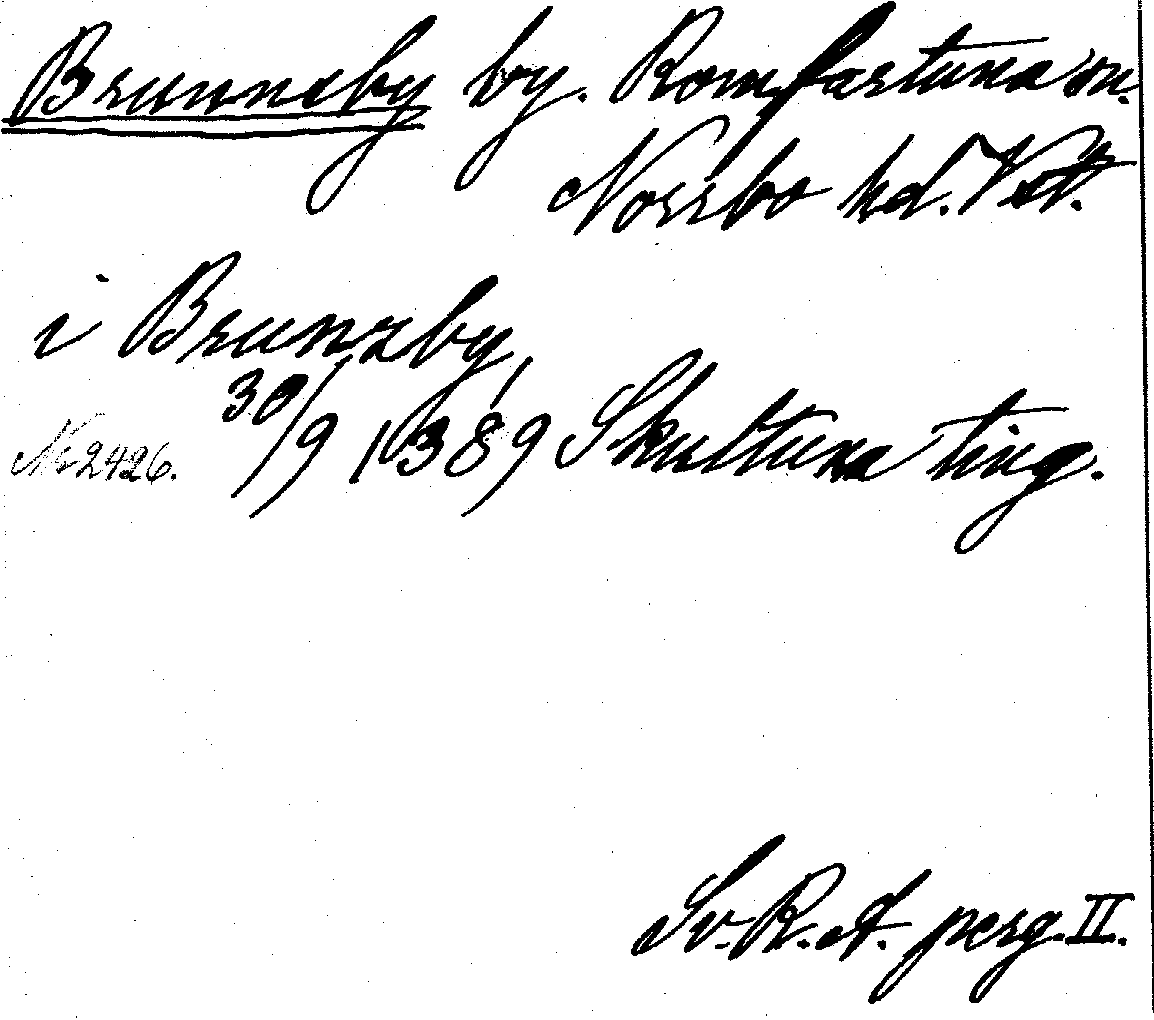 Brunnsby by. Romfartuna sn.
Norrbo hd. Vstm.
i Brunzby,
No 2426. 30/9 1389 Skultuna ting.
Sv. R. A. perg. II.